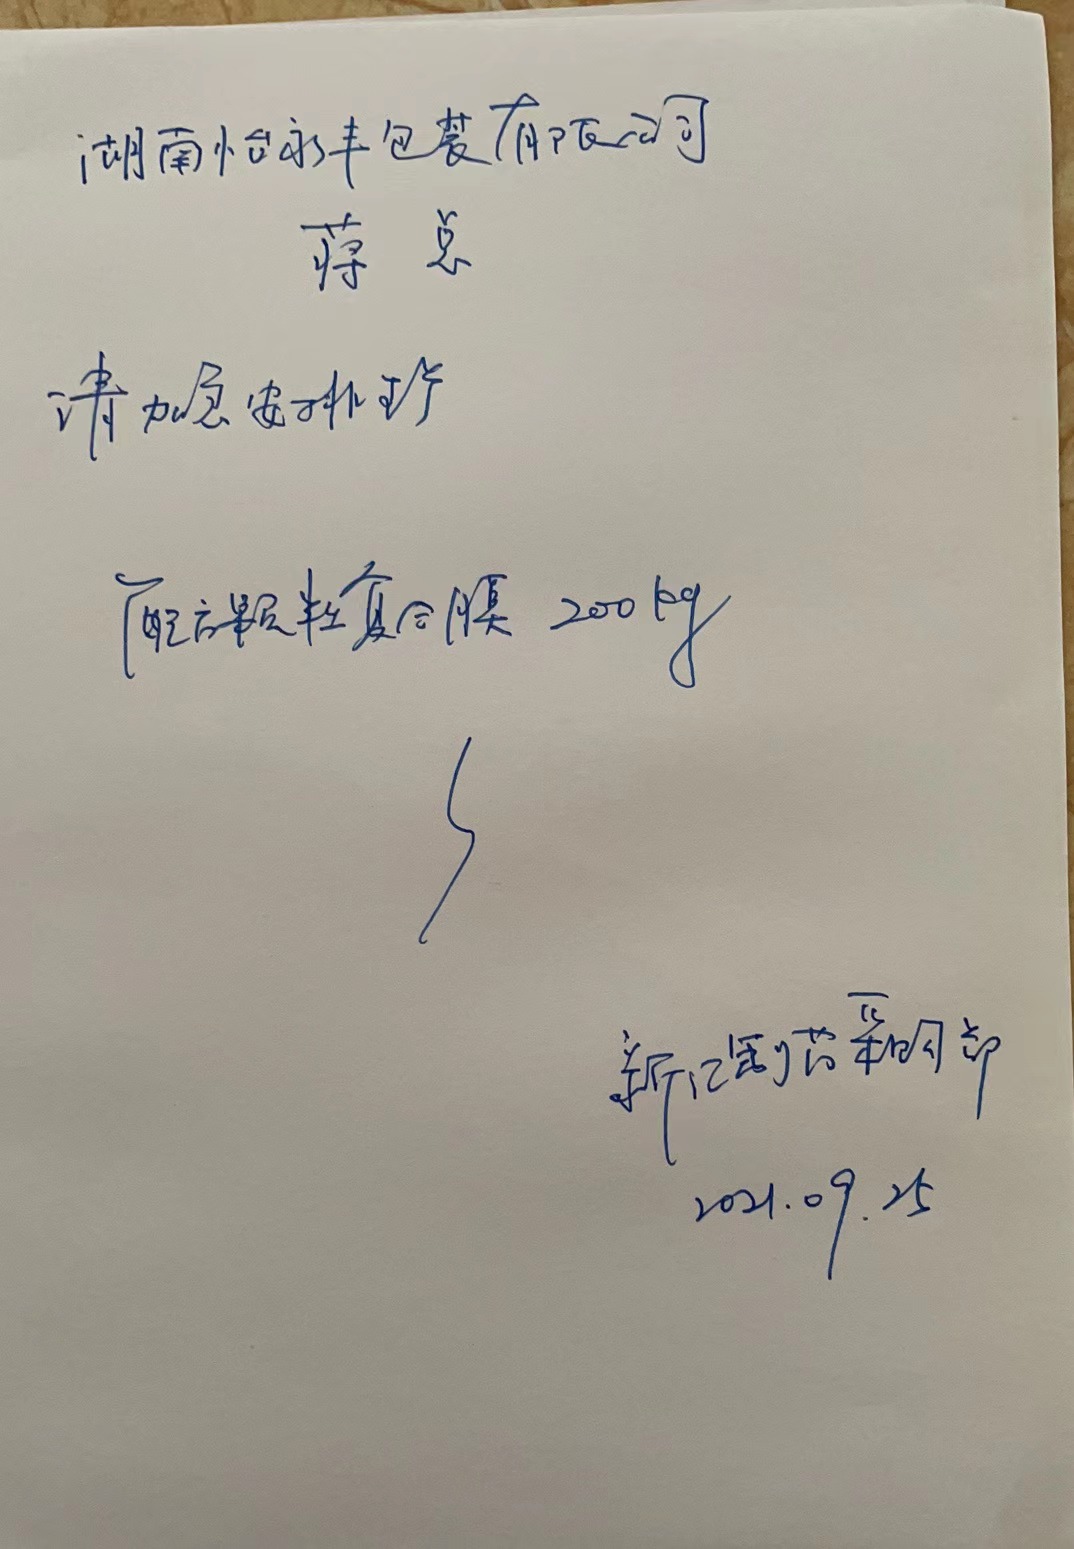 湖南怡永丰包装有限公司
蒋 总
请加急安排生产
配方颗粒复合膜 200kg
新汇制药采购部
2021.09.25